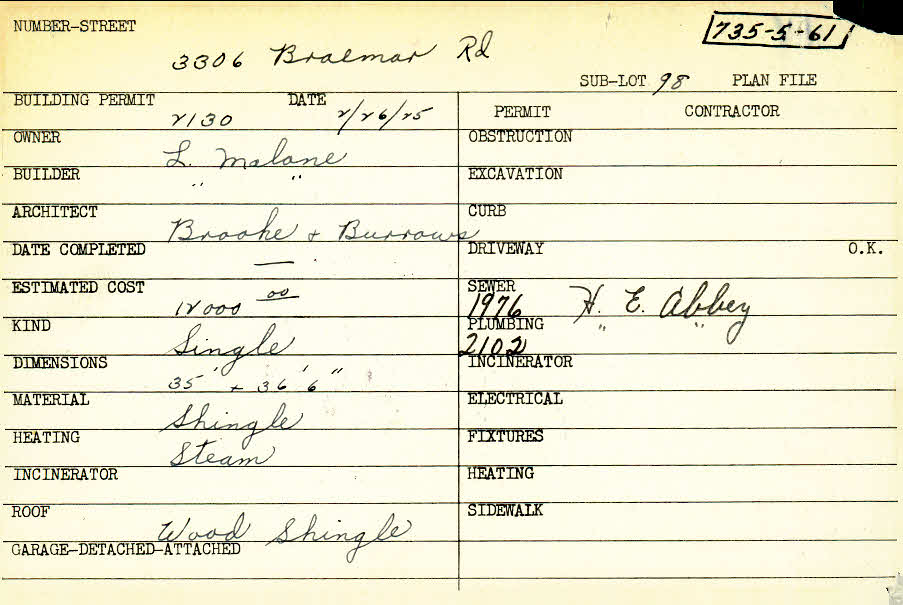 NUMBER-STREET
735-5-61
3306 Braemar Rd
SUB-LOT 98 PLAN FILE
BUILDING PERMIT 2130 DATE 2/26/25
PERMIT CONTRACTOR
OWNER L. Malone
OBSTRUCTION
BUILDER " "
EXCAVATION
ARCHITECT Brooke + Burrows
CURB
DATE COMPLETED —
DRIVEWAY O.K.
ESTIMATED COST 12000 00
SEWER 1976 H. E. Abbey
KIND Single
PLUMBING 2102 " "
DIMENSIONS 35' + 36' 6"
INCINERATOR
MATERIAL Shingle
ELECTRICAL
HEATING Steam
FIXTURES
INCINERATOR
HEATING
ROOF Wood Shingle
SIDEWALK
GARAGE-DETACHED-ATTACHED